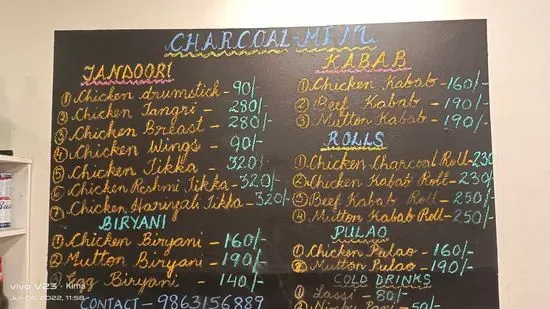 CHARCOAL-MENU
TANDOORI
① Chicken drumstick - 90/-
② Chicken Tangri - 280/-
③ Chicken Breast - 280/-
④ Chicken Wings - 90/-
⑤ Chicken Tikka 320/-
⑥ Chicken Reshmi Tikka - 320/-
⑦ Chicken Haryali Tikka - 320/-
BIRYANI
① Chicken Biryani - 160/-
② Mutton Biryani - 190/-
③ Egg Biryani - 140/-
CONTACT - 9863156889
KABAB
① Chicken Kabab - 160/-
② Beef Kabab - 190/-
③ Mutton Kabab - 190/-
ROLLS
① Chicken Charcoal Roll - 230
② Chicken Kabab Roll - 230/
③ Beef Kabab Roll - 250/
④ Mutton Kabab Roll - 250/
PULAO
① Chicken Pulao - 160/-
② Mutton Pulao - 190/-
COLD DRINKS
① Lassi - 80/-
② Nimbu Pani - 50/-
vivo V23 · Kima
Jun 08, 2022, 11:58